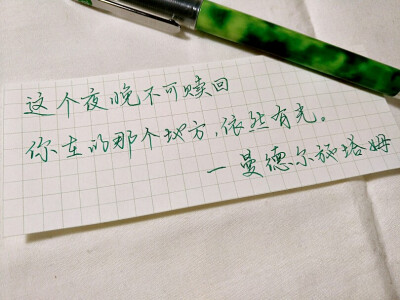 这个夜晚不可赎回
你在的那个地方，依然有光。
—曼德尔施塔姆